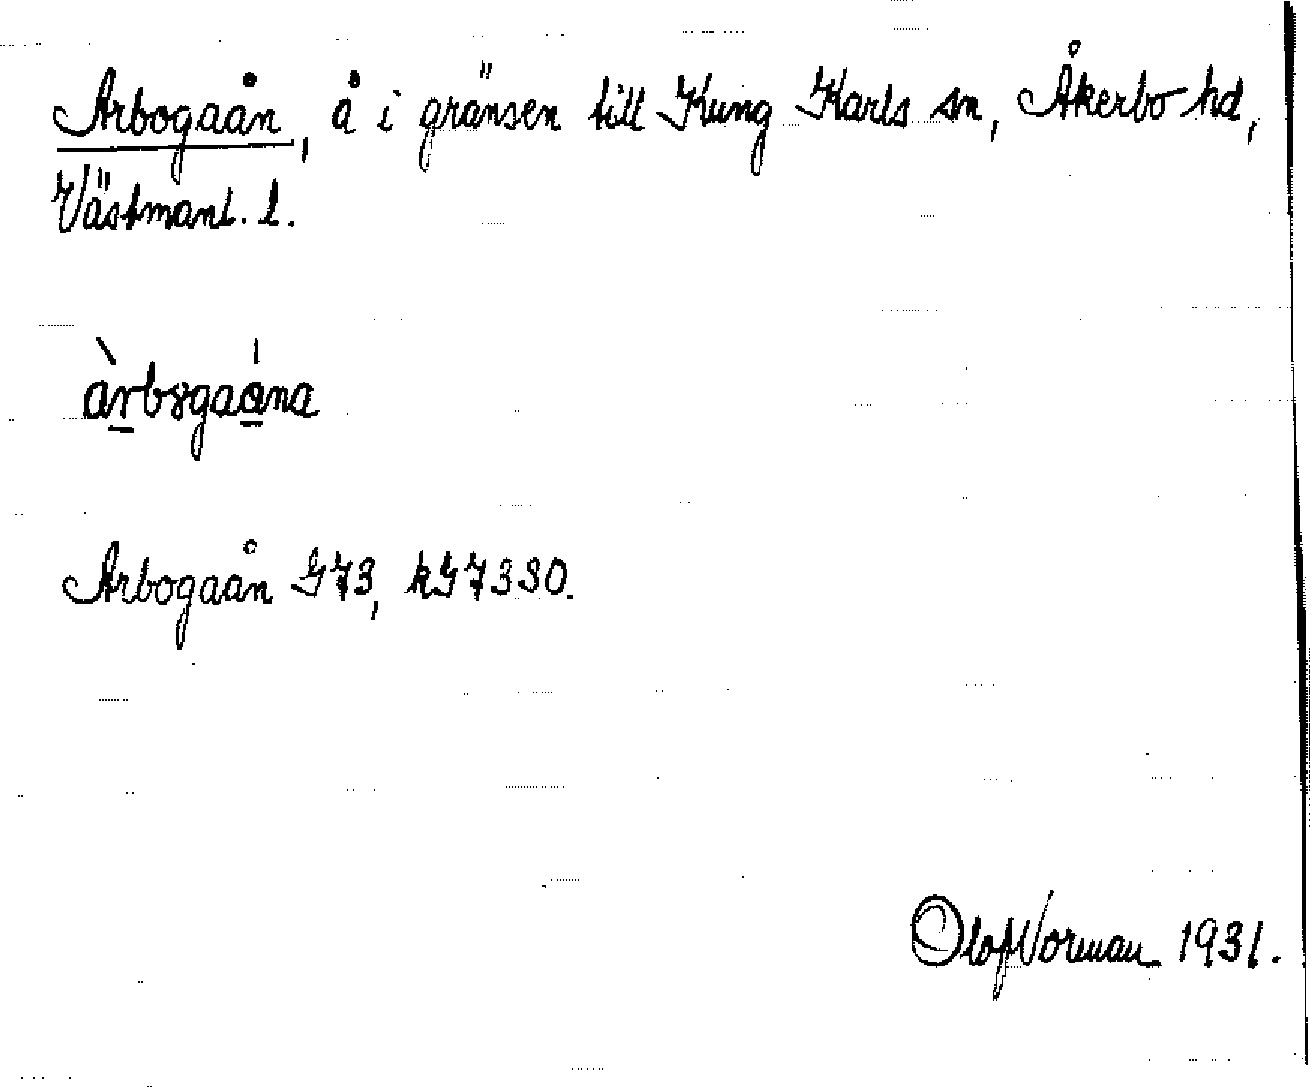 Arbogaån, å i gränsen till Kung Karls sn, Åkerbo hd,
Västmanl. l.
àrbɷgaána
Arbogaån G73, kG7330.
Olof Norman 1931.